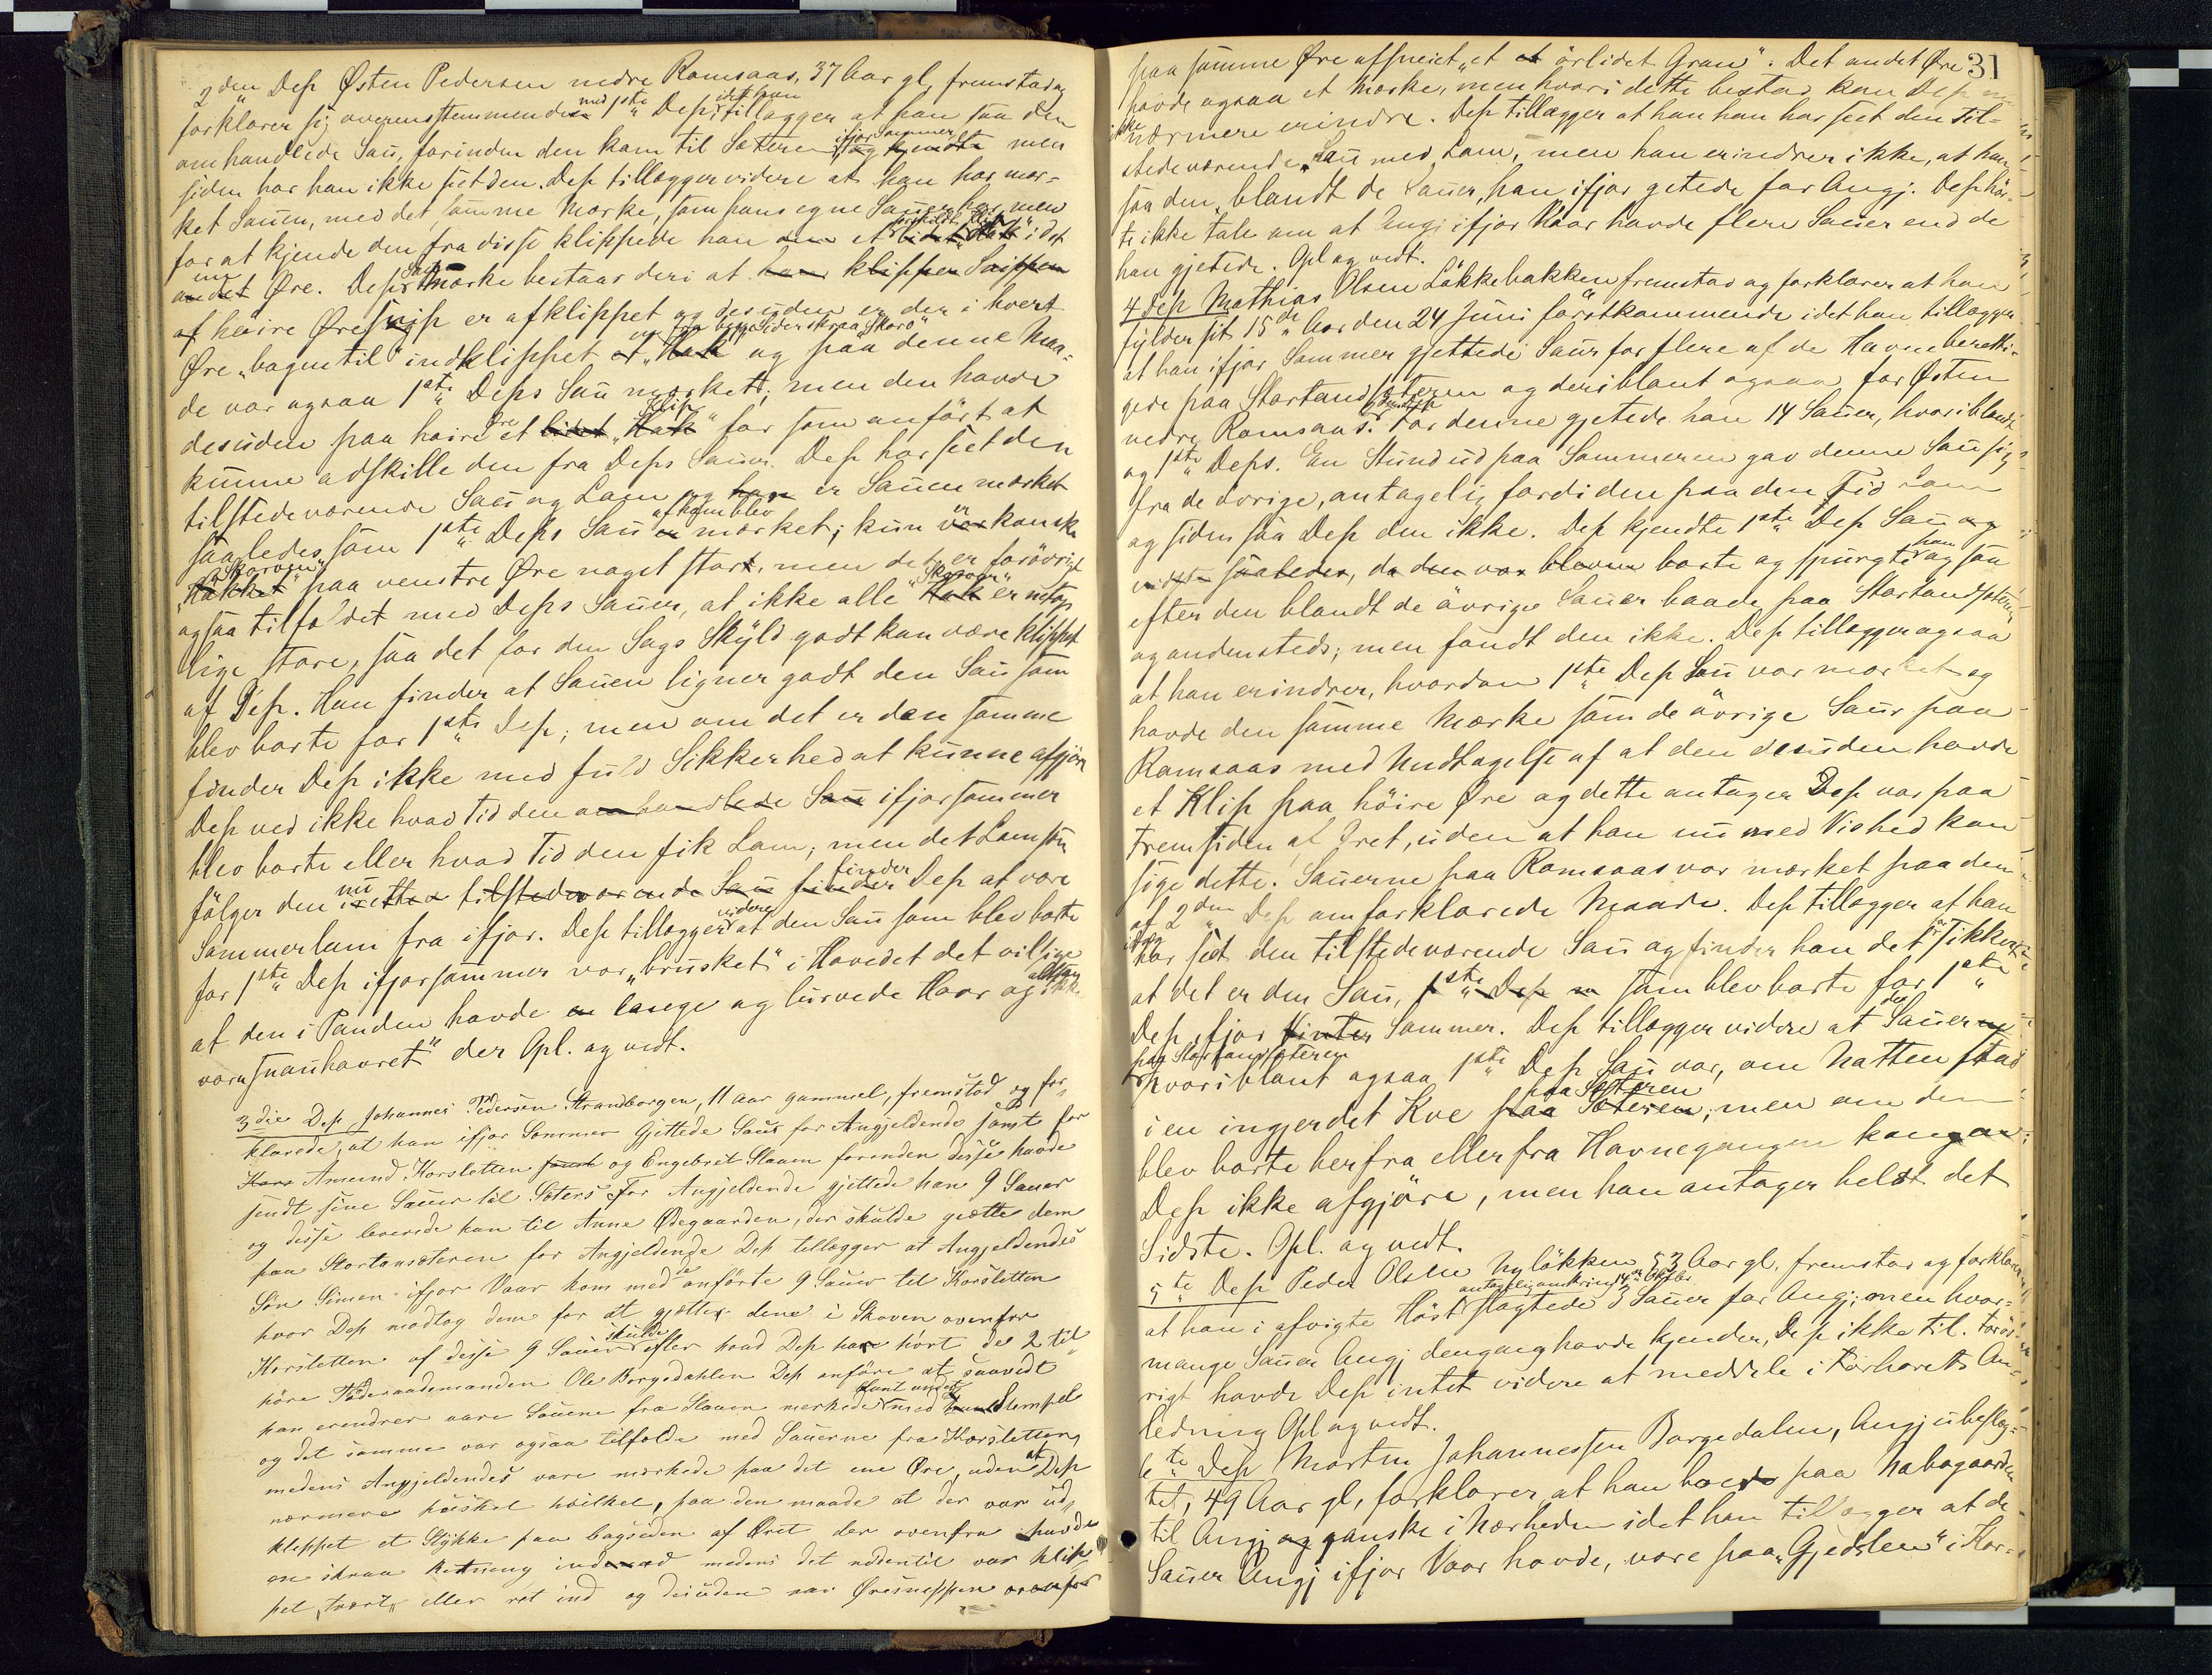 2den Dep Østen Pedersen nedre Ramsaas, 37 Aar gl, fremstod og
forklarer sig overensstemmende med 1ste Dep, idet han tillægger at han saa den
omhandlede Sau, forinden den kom til Sæteren ifjor Sommer og kjendte men
siden har han ikke seet den. Dep tillægger videre at han har mær-
ket Sauen, med det samme Mærke, som hans egne Sauer har men
for at kjende den fra disse klippede han den et særskildt Klip lidet Hak i det
ene andet Øre. Deps Sau Mærke bestaar deri at han klipper Snippen
af høire Øresnip er afklippet og desuden er der i hvert
Øre "bagentil" indklippet et "Hak" en fra begge Sider skraa "Skord" og paa denne Maa-
de var ogsaa 1ste Deps Sau mærket, men den havde
desuden paa høire Øre et lidet "Hak" Klip for som anført at
kunne adskille den fra Deps Sauer. Dep har seet den
tilstedeværende Sau og Lam og han er Sauen mærket
saaledes som 1ste Deps Sau er af ham blev mærket; kun var kanske
"Hakket" "Skorden" paa venstre Øre noget stort, men det er forøvrigt
ogsaa tilfældet med Deps Sauer, at ikke alle "Hak" "Skorder" er nøiag
lige store, saa det for den Sags Skyld godt kan være klippet
af Dep. Han finder at Sauen ligner godt den Sau som
blev borte for 1ste Dep; men om det er den samme
finder Dep ikke med fuld Sikkerhed at kunne afgjøre
Dep ved ikke hvad tid den omhandlede Sau ifjor sommer
blev borte eller hvad Tid den fik Lam, men det Lam som
følger den nu i retten tilstedeværende Sau finder Dep at være
Sommerlam fra ifjor. Dep tillægger videre at den Sau som blev borte
for 1ste Dep ifjor sommer var "brusket" i Hovedet det vil sige
at den i Panden havde en lasege og lurvede Haar og ikke
var "snauhavret" der Opl. og vedt.
3die Dep Johannes Pedersen Strandborgen, 11 aar gammel, fremstod og for-
klarede, at han ifjor Sommer Gjettede Saus for Angjeldende samt for
Hans Amund Korsletten samt og Engebret Slaaen forenden disse havde
sendt sine Sauer til Sæters. For Angjeldende gjettede han 9 Sauer
og disse leverede han til Anne Ødegaarden, der skulde gjætte dem
paa Stortansæteren for Angjeldende Dep tellægger at Angjeldendes
Søn Simen ifjor Vaar kom med de anførte 9 Sauer til Korsletten
hvor Dep modtog dem for at gjætte dene i Skoven ovenfor
Korsletten af disse 9 Sauer skulde efter hvad Dep har hørt de 2 til-
høre Føderaadsmanden Ole Borgedahlen Dep anføre at saavidt
han erendrer vare Sauene fra Slaaen merkede med Stempel
og det samme var ogsaa tilfælde med Sauerne fra Korsletten
medens Angjeldendes vare merkede paa det ene Øre, uden at Dep
nærmere husket hvilket, paa den maade at der var ud-
kleppet et Stykke paa bagsiden af Øret der ovenfra havde
en skraa Retneng indad medens det neddentil var klip-
pet "tvært" eller ret ind og desuden var Øresneppen ovenfor
31
paa samme Øre affneiet, "et et ørlidet Gran". Det andet Øre
havde ogsaa et Mærke, men hvori dette bestod kan Dep nu
ikke nærmere erindre. Dep tillægger at han han har seet den til-
stedeværende Sau med Lam, men han erindrer ikke, at han
saa den blandt de Sauer, han ifjor getede for Angj. Dep hør-
te ikke tale om at Angj ifjor Vaar havde flere Sauer end de
han gjetede. Opl og vedt.
4 Dep Mathias Olsen Løkkebakken fremstod og forklarer at han
fylder sit 15de Aar den 24 Juni førstkommende idet han tillægger
at han ifjor Sommer gjettede Saus for flere af de Havneberetti-
gede paa Stortandsæteren og deriblant ogsaa for Østen
nedre Ramsaas. For denne gjetede han 14 Sauer, hvoriblandt
og 1ste Deps. En Stund ud paa Sommeren gav denne Sau sig
fra de øvrige, antagelig fordi den paa den Tid Lam
og siden saa Dep den ikke. Dep kjendte 1ste Dep Sau og
saaledes, da den var bleven borte og spurgte han og saa
efter den blandt de øvrige Sauer baade paa Stortandsæteren
og andensteds; men fandt den ikke. Dep tillægger ogsaa
at han erindrer, hvordan 1ste Dep Sau var mærket og
havde den samme Mærke som de øvrige Saus paa
Ramsaas med Undtagelse af at den desuden havde
et Klip paa høire Øre og dette antager Dep var paa
Fremsiden af Øret, uden at han nu med Vished kan
sige dette. Sauerne paa Ramsaas var mærket paa den
af 2den Dep omforklarede Maade. Dep tillægger at han
har seet den tilstedeværende Sau og finder han det sikkert
at det er den Sau, 1ste Dep som blev borte for 1ste
Dep ifjor Vinter Sommer. Dep tillægger videre at der Sauerne
paa Stortandsæteren hvoriblant ogsaa 1ste Dep Sau var, om Natten stod
i en ingjerdet Kve paa Sæteren paa Sæteren; men om den
blev borte herfra eller fra Havnegangen kan
Dep ikke afgjøre, men han antager helst det
Sidste. Opl. og vedt.
5te Dep Peder Olsen Nyløkken 53 Aar gl. fremstod og forklarer
at han i afvigte Høst antagelig omkring 14de Oktober slagtede 3 Sauer for Angj; men hvor-
mange Sauer Angj dengang havde kjender, Dep ikke til. Forøv-
rigt havde Dep intet videre at meddele i Forhørets An-
ledning Opl og vedt.
6te Dep Morten Johannessen Borgedalen, Angj ubeslæg-
tet, 49 Aar gl, forklarer at han boede paa Nabogaarden
til Angj og ganske i Nærheden idet han tillægger at de
Sauer Angj ifjor Vaar havde, vare paa "Gjedslen" i Kor-